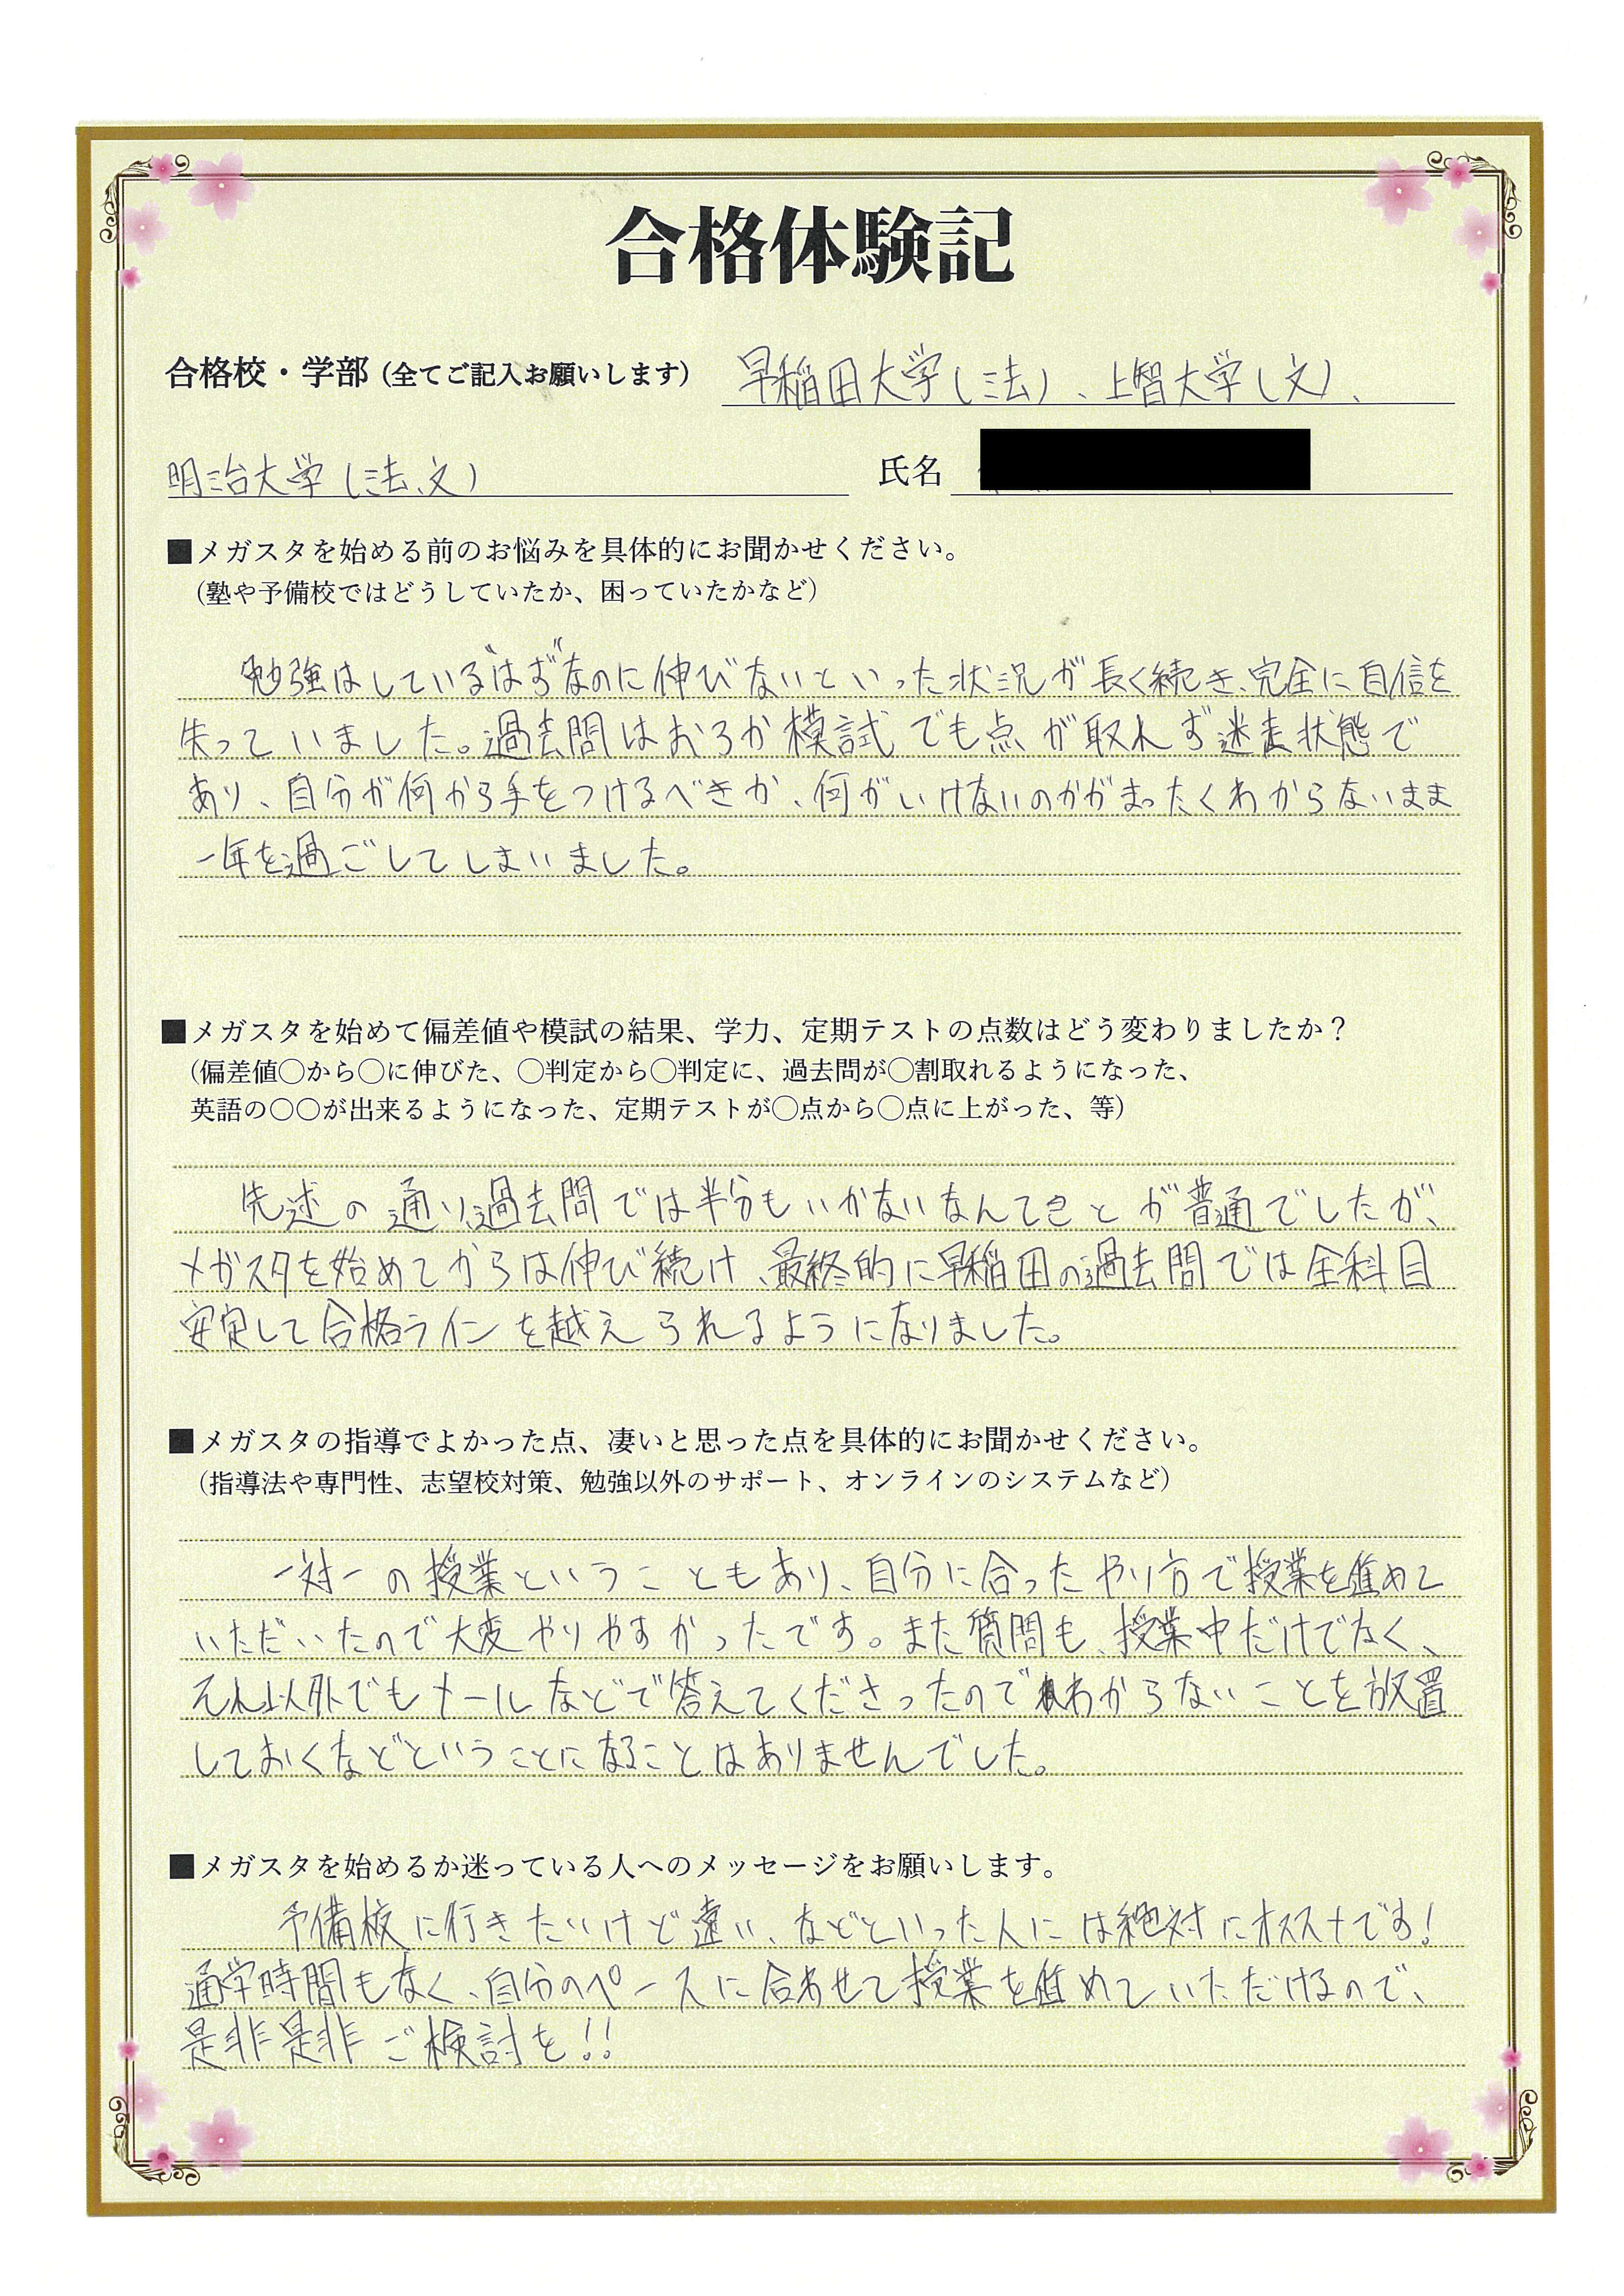 合格体験記
合格校・学部（全てご記入お願いします） 早稲田大学（法）、上智大学（文）、
明治大学（法、文） 氏名
■メガスタを始める前のお悩みを具体的にお聞かせください。
（塾や予備校ではどうしていたか、困っていたかなど）
勉強はしている“はず”なのに伸びないといった状況が長く続き、完全に自信を
失っていました。過去問はおろか模試でも点が取れず迷走状態で
あり、自分が何から手をつけるべきか、何がいけないのかがまったくわからないまま
一年を過ごしてしまいました。
■メガスタを始めて偏差値や模試の結果、学力、定期テストの点数はどう変わりましたか？
（偏差値〇から〇に伸びた、〇判定から〇判定に、過去問が〇割取れるようになった、
英語の〇〇が出来るようになった、定期テストが〇点から〇点に上がった、等）
先述の通り、過去問では半分もいかないなんてことが普通でしたが、
メガスタを始めてからは伸び続け、最終的に早稲田の過去問では全科目
安定して合格ラインを越えられるようになりました。
■メガスタの指導でよかった点、凄いと思った点を具体的にお聞かせください。
（指導法や専門性、志望校対策、勉強以外のサポート、オンラインのシステムなど）
一対一の授業ということもあり、自分に合ったやり方で授業を進めて
いただいたので大変やりやすかったです。また質問も、授業中だけでなく、
それ以外でもメールなどで答えてくださったのでわからないことを放置
しておくなどということになることはありませんでした。
■メガスタを始めるか迷っている人へのメッセージをお願いします。
予備校に行きたいけど遠い、などといった人には絶対にオススメです！
通学時間もなく、自分のペースに合わせて授業を進めていただけるので、
是非是非ご検討を！！